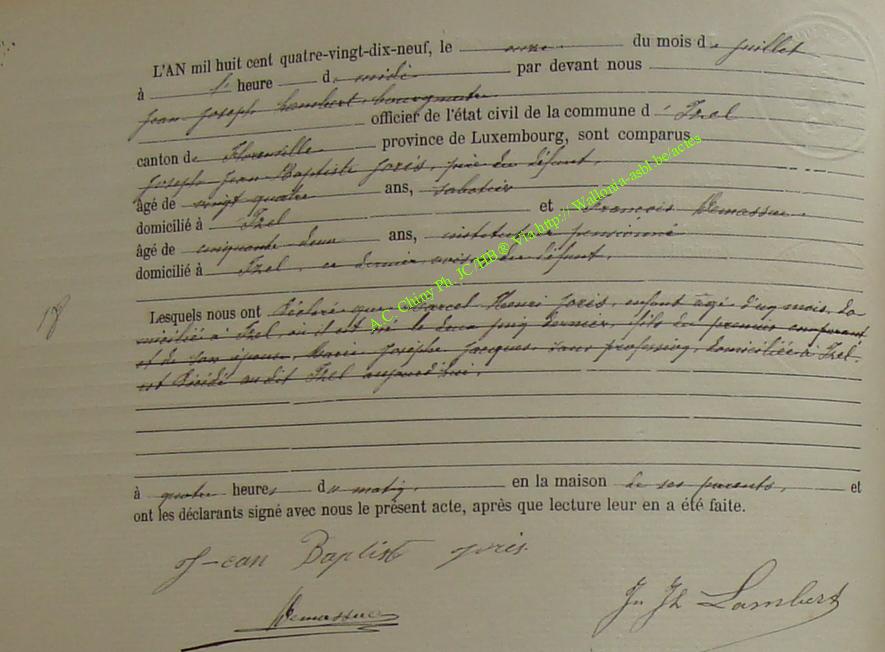 L'AN mil huit cent quatre-vingt-dix-neuf, le onze du mois de juillet
à l' heure de midi par devant nous
Jean Joseph Lambert, bourgmestre
officier de l'état civil de la commune d' Izel
canton de Florenville province de Luxembourg, sont comparus
Joseph Jean Baptiste Joris, père du défunt,
âgé de vingt quatre ans, sabotier
domicilié à Izel et François Demassue,
âgé de cinquante deux ans, instituteur pensionné
domicilié à Izel, ce dernier voisin du défunt.
18
Lesquels nous ont déclaré que Marcel Henri Joris, enfant âgé d'un mois, do
micilié à Izel, où il est né le deux juin dernier, fils du premier comparant
et de son épouse, Marie Josèphe Jacques, sans profession, domiciliée à Izel
est décédé au dit Izel aujourd'hui,
à quatre heures du matin, en la maison de ses parents, et
ont les déclarants signé avec nous le présent acte, après que lecture leur en a été faite.
Jean Baptist Joris
Demassue
Jn Jh Lambert
A.C. Chiny Ph. JC /HB ® Via http:// Wallonia-asbl.be/actes